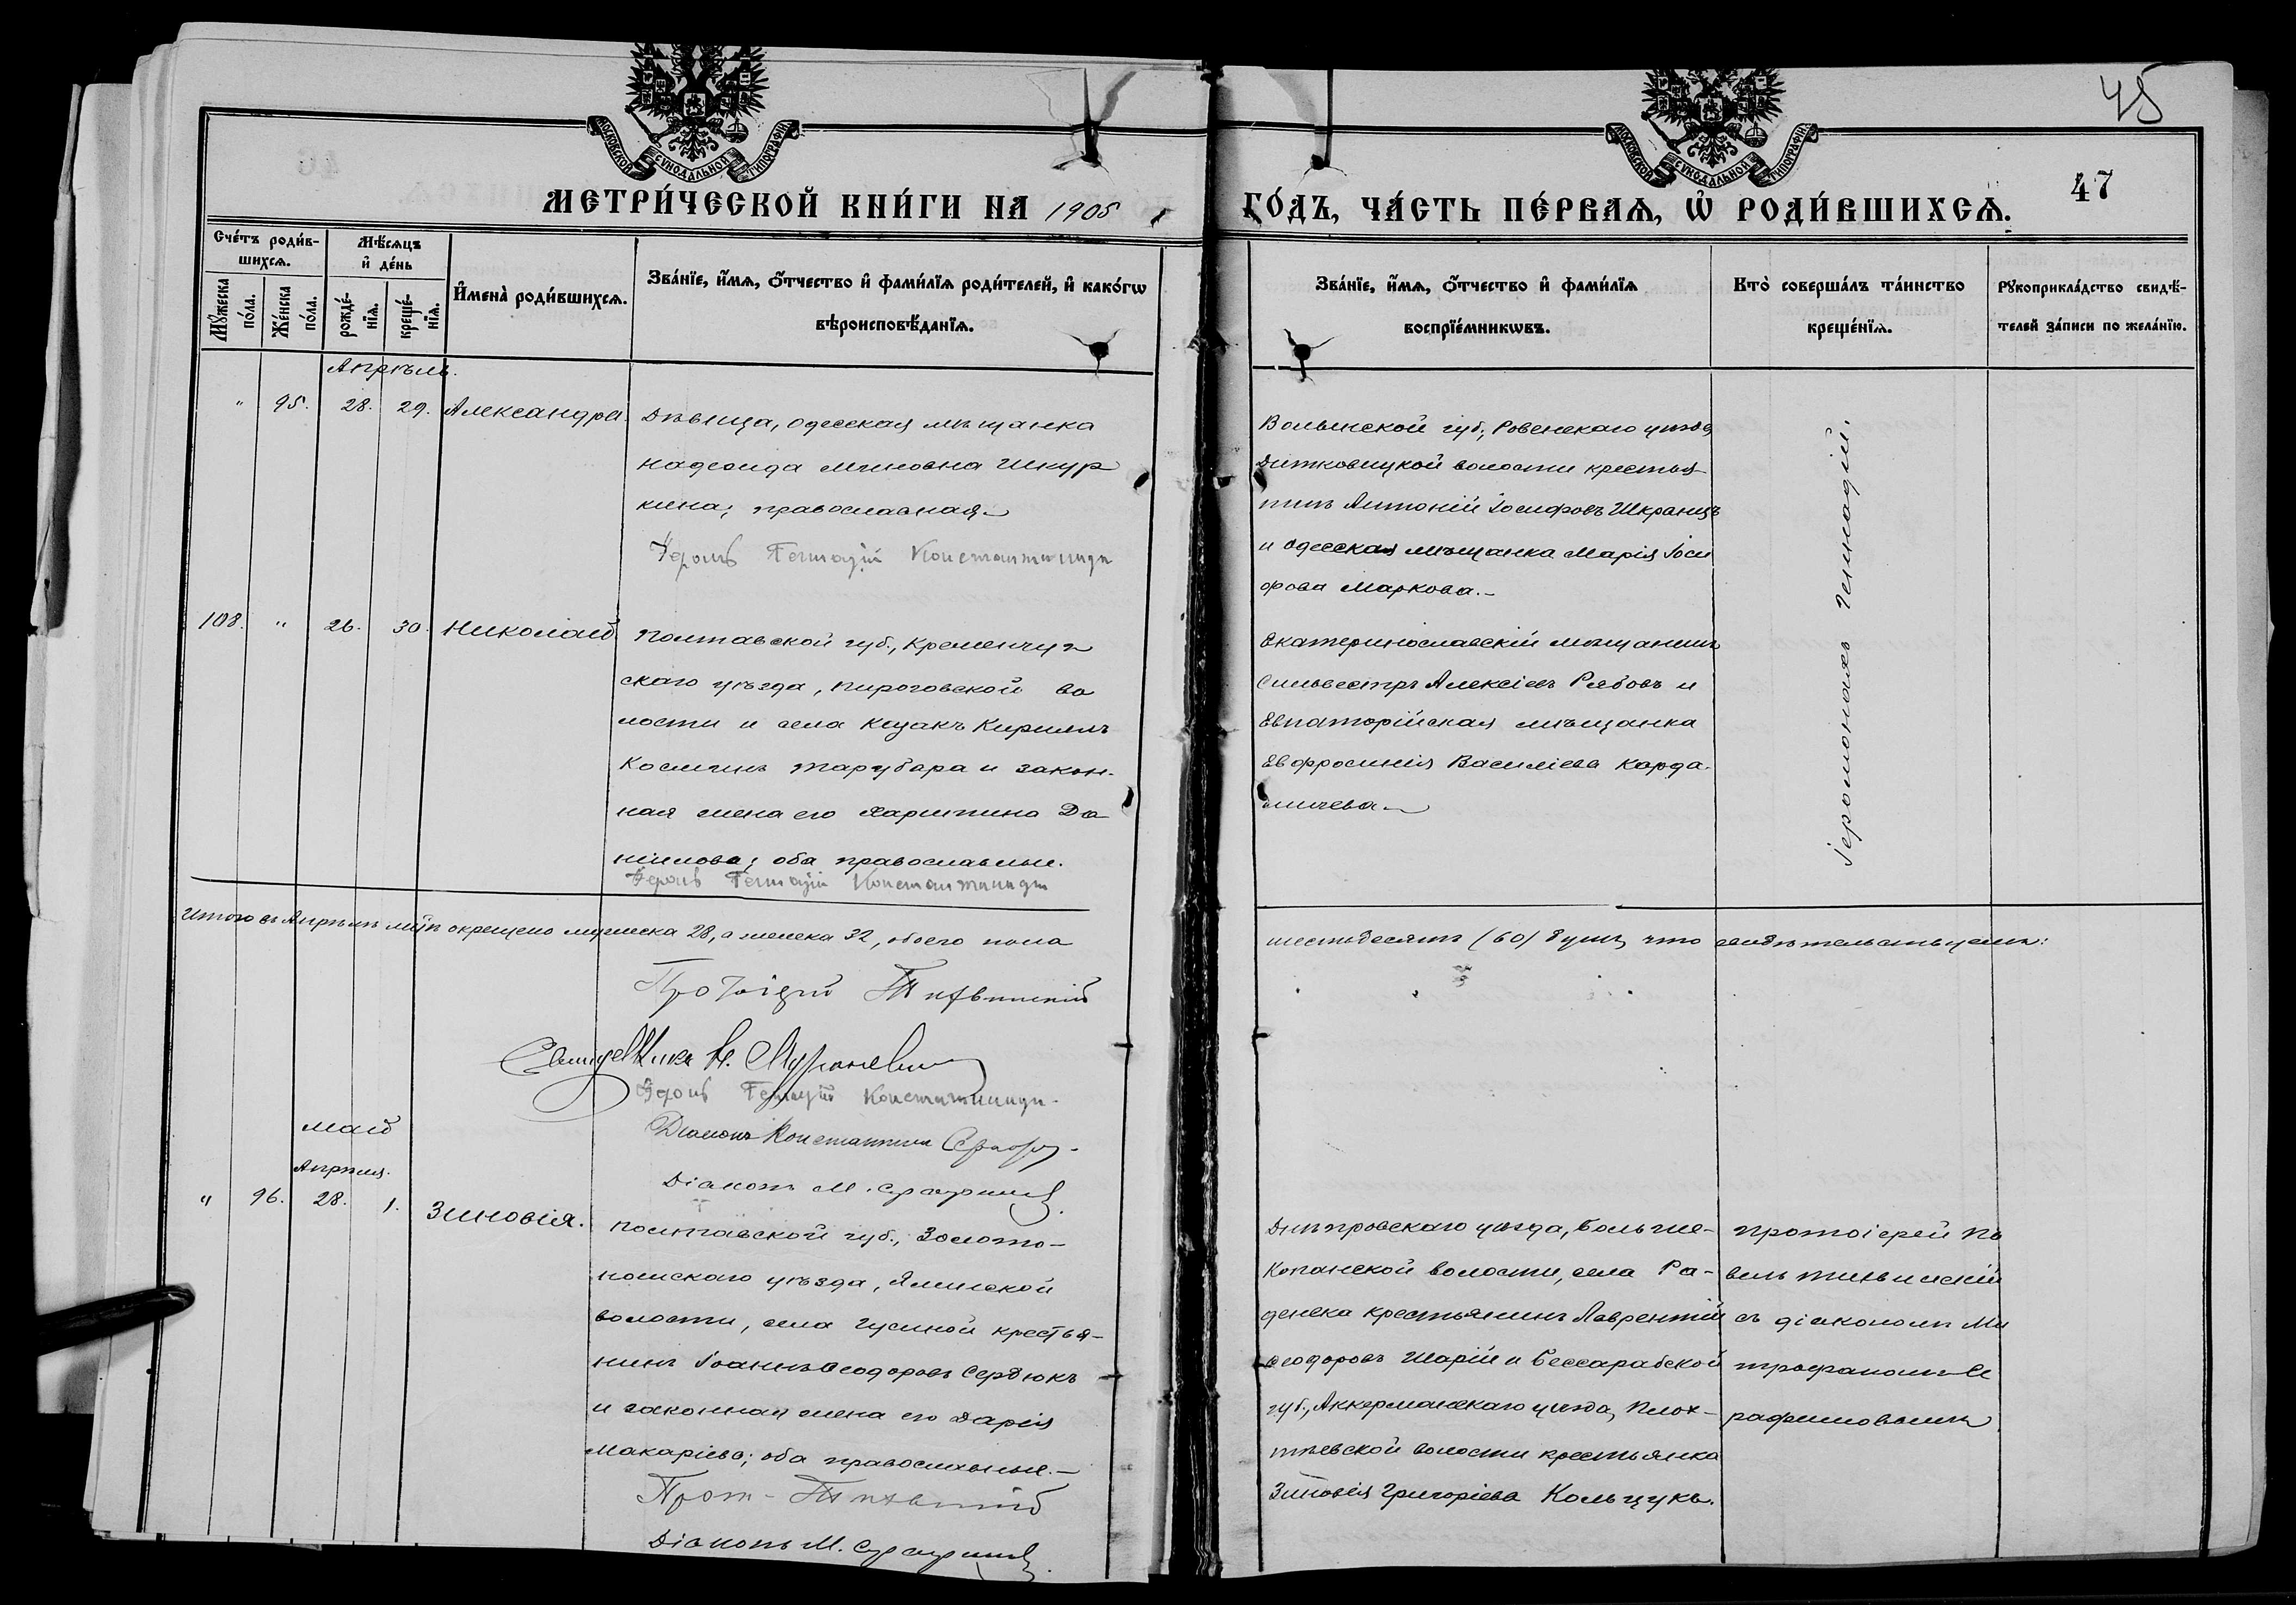 45
47
МОСКОВСКОЙ СѴНОДАЛЬНОЙ ТИПОГРАФІИ
МОСКОВСКОЙ СѴНОДАЛЬНОЙ ТИПОГРАФІИ
МЕТРИ́ЧЕСКОЙ КНИ́ГИ НА 1905
ГО́ДЪ, ЧА́СТЬ ПЕ́РВАѦ, Ѡ҆ РОДИ́ВШИХСѦ.
Сче́тъ роди́в-
шихсѧ.
Мꙋ́жеска по́ла.
Же́нска по́ла.
Мѣ́сѧцъ
и҆ де́нь
рожде́-нїѧ.
креще́-нїѧ.
И҆мена̀ роди́вшихсѧ.
Зва́нїе, и҆́мѧ, ѻ҆́тчество и҆ фами́лїѧ роди́телей, и҆ како́гѡ
вѣроисповѣ́данїѧ.
Зва́нїе, и҆́мѧ, ѻ҆́тчество и҆ фами́лїѧ
воспрїе́мникѡвъ.
Кто̀ соверша́лъ та́инство
креще́нїѧ.
Рꙋкоприкла́дство свидѣ́-
телей за́писи по жела́нїю.
Апрѣль.
" 95. 28. 29. Александра.
Дѣвица, одесская мѣщанка
Надежда Шкур
кина; православная.
Іером Геннадій Константиниди
Волынской губ., Ровенскаго уѣзда
волости крестья
нинъ Антоній Іосифовъ
и одесская мѣщанка Марія Іоси
фова Маркова.-
Іеромонахъ Геннадій.
108. " 26. 30. Николай
Полтавской губ., Кременчуг
скаго уѣзда, Пироговской во
лости и села козакъ Кириллъ
Косминъ Тарубара и закон-
ная жена его Харитина Да
ніилова; оба православные.
Іером Геннадій Константиниди
Екатеринославскій мѣщанинъ
Сильвестръ Алексіевъ Рябовъ и
Евпаторійская мѣщанка
Евфросинія Василіева Карда-
Итого въ Апрѣлѣ мцѣ окрещено мужеска 28, а женска 32, обоего пола
шестьдесятъ (60) душъ, что свидѣтельствуемъ:
Протоіерей
Іером Геннадій Константиниди.
Діаконъ Константинъ
Діаконъ М.
май
Апрѣля.
" 96. 28. 1. Зиновія.
Полтавской губ., Золото-
ношскаго уѣзда,
волости, села Гусиной крестья-
нинъ Іоаннъ Ѳеодоровъ Сердюкъ
и законная жена его Дарія
Макаріева; оба православные.-
Прот.
Діаконъ М.
Днѣпровскаго уѣзда, Больше-
Копанской волости, села Ра-
денска крестьянинъ Лаврентій
Ѳеодоровъ Шарій и Бессарабской
губ., Аккерманскаго уѣзда, Плох-
тѣевской волости крестьянка
Зиновія Григоріева Кольцукъ.
Протоіерей Па
велъ
съ діакономъ Ми
трофаномъ Се
рафимовымъ